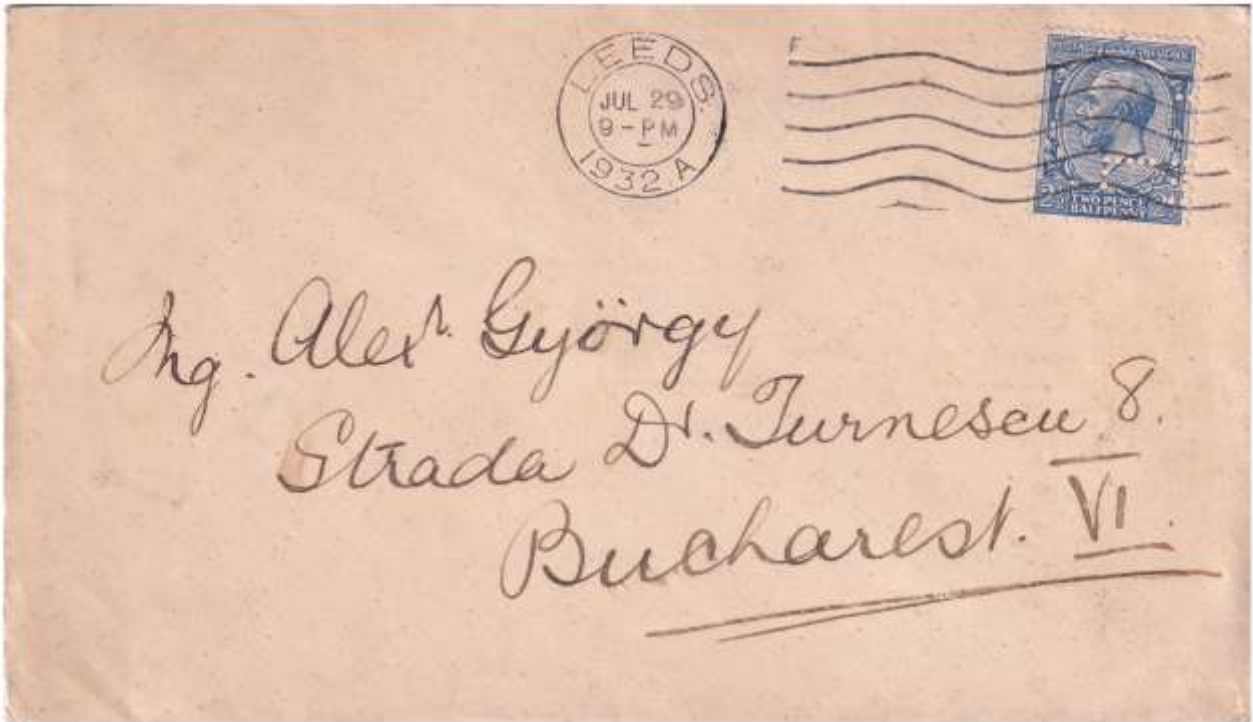 LEEDS.
JUL 29
9-PM
1932 A
TWO PENCE
HALFPENNY
Ing. Alexr. György
Strada Dr. Turnescu 8.
Bucharest. VI.